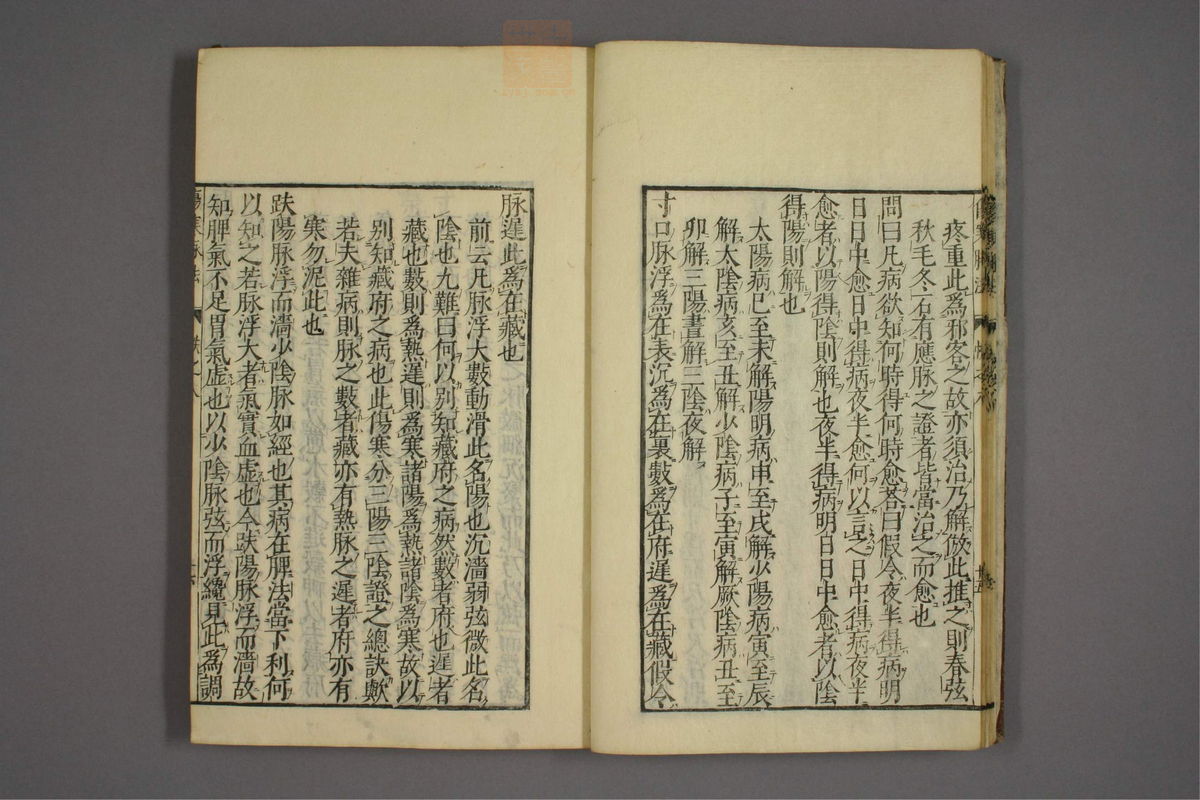 疼重此爲邪客之故亦須治乃解倣此推之則春弦
秋毛冬石有應脉之證者皆當治之而愈也
問曰凡病欲知何時得何時愈荅曰假令夜半得病明
日日中愈日中得病夜半愈何以言之日中得病夜半
愈者以陽得陰則解也夜半得病明日日中愈者以陰
得陽則解也
太陽病巳至未解陽明病申至戌解少陽病寅至辰
解太陰病亥至丑解少陰病子至寅解厥陰病丑至
卯解三陽晝解三陰夜解
寸口脉浮爲在表沉爲在裏數爲在府遲爲在藏假令
脉遲此爲在藏也
前云凡脉浮大數動滑此名陽也沉濇弱弦微此名
陰也九難曰何以別知藏府之病然數者府也遲者
藏也數則爲熱遲則爲寒諸陽爲熱諸陰爲寒故以
別知藏府之病也此傷寒分三陽三陰證之總訣歟
若夫雜病則脉之數者藏亦有熱脉之遲者府亦有
寒勿泥此也
趺陽脉浮而濇少陰脉如經也其病在脾法當下利何
以知之若脉浮大者氣實血虛也今趺陽脉浮而濇故
知脾氣不足胃氣虛也以少陰脉弦而浮纔見此爲調
傷寒脉法
十六
十五